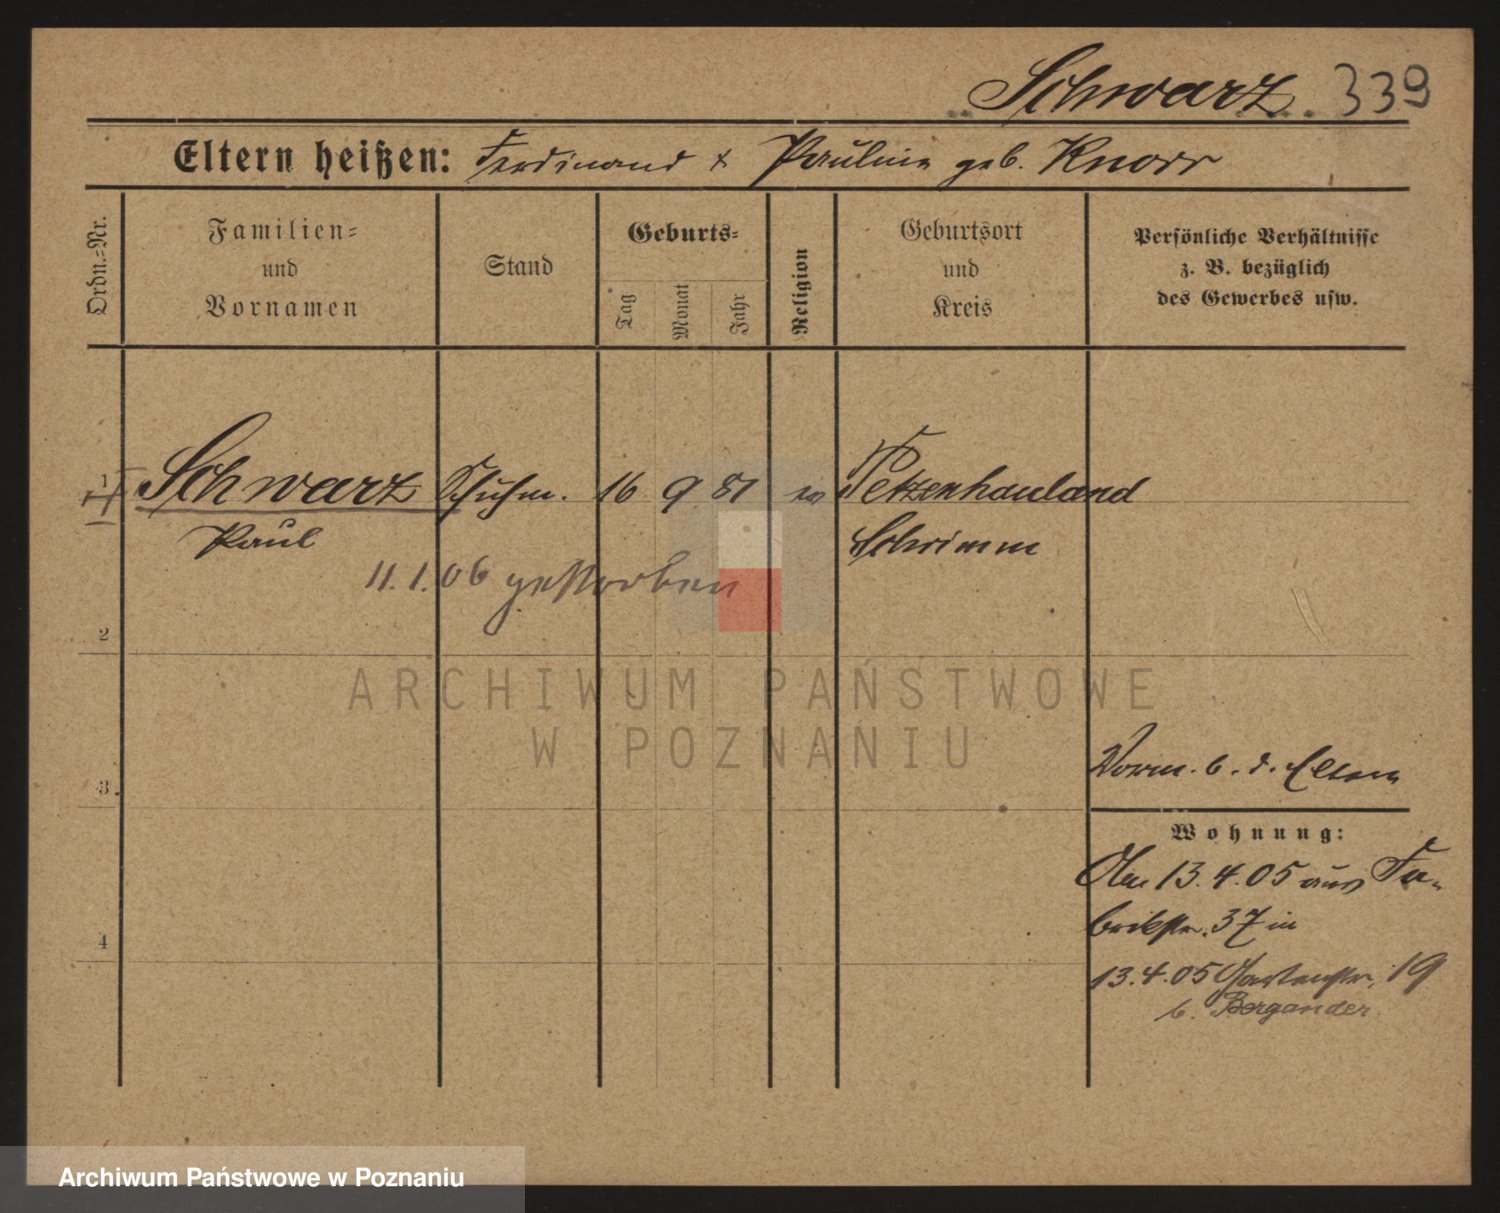 Schwarz. 339
Eltern heißen: Ferdinand & Pauline geb. Knorr
Ordn.-Nr.
Familien-
und
Vornamen
Stand
Geburts-
Tag
Monat
Jahr
Religion
Geburtsort
und
Kreis
Persönliche Verhältnisse
z. B. bezüglich
des Gewerbes usw.
1 Schwarz Schuhm. 16 9 81 ev Petzenhauland
Paul Schrimm
11.1.06 gestorben
2
ARCHIWUM PAŃSTWOWE
W POZNANIU
Vorm. b. d. Eltern
3
Wohnung:
Am 13.4.05 aus Fa-
brikstr. 37 in
4
13.4.05 Gartenstr. 19
b. Bergander
Archiwum Państwowe w Poznaniu